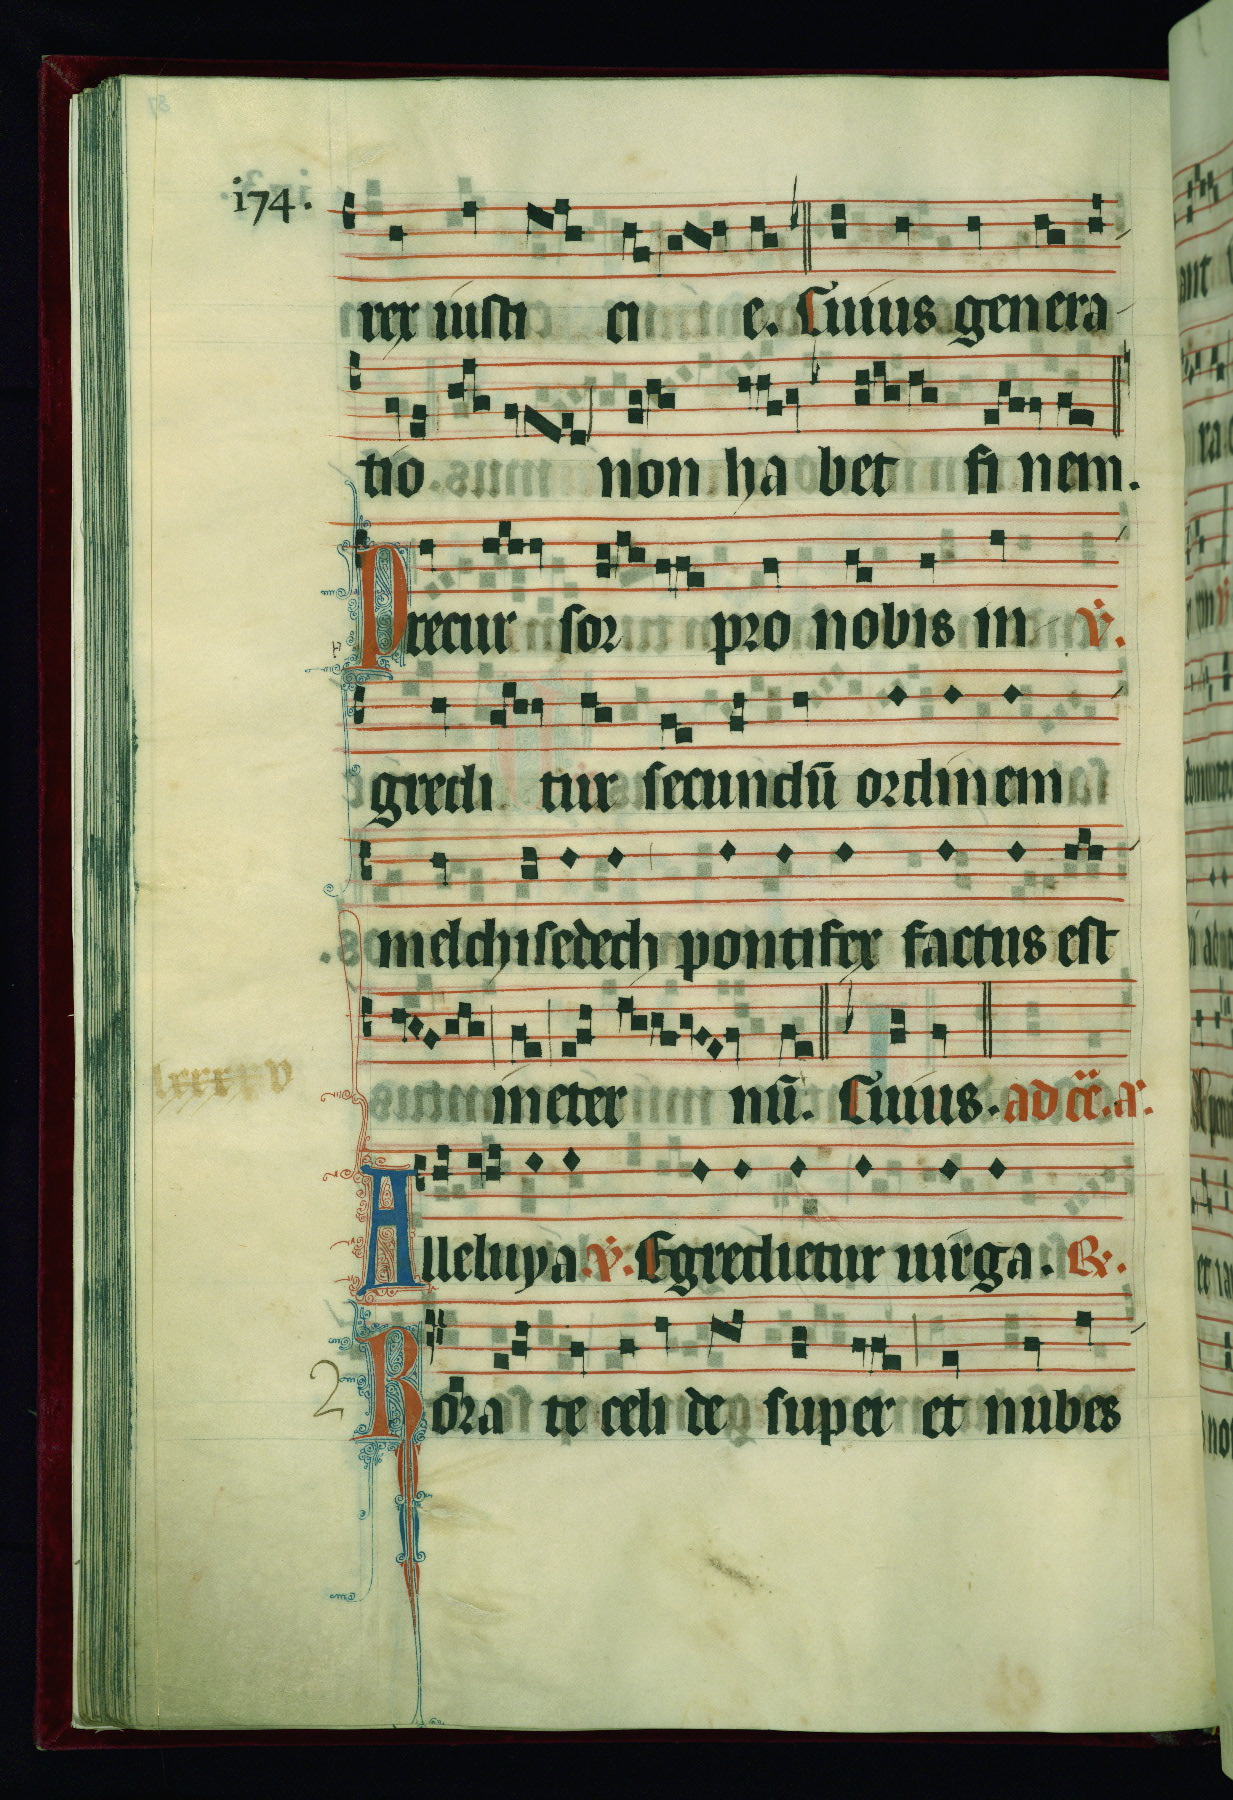 174.
rex iusti ci e. Cuius genera
tio non ha bet fi nem.
Precur sor pro nobis in v̇.
gredi tur secundū ordinem
melchisedech pontifex factus est
ineter nū. Cuius. ad cē. a.
Alleluya v̇. Egredietur uirga. R.
2 Rora te celi de super et nubes